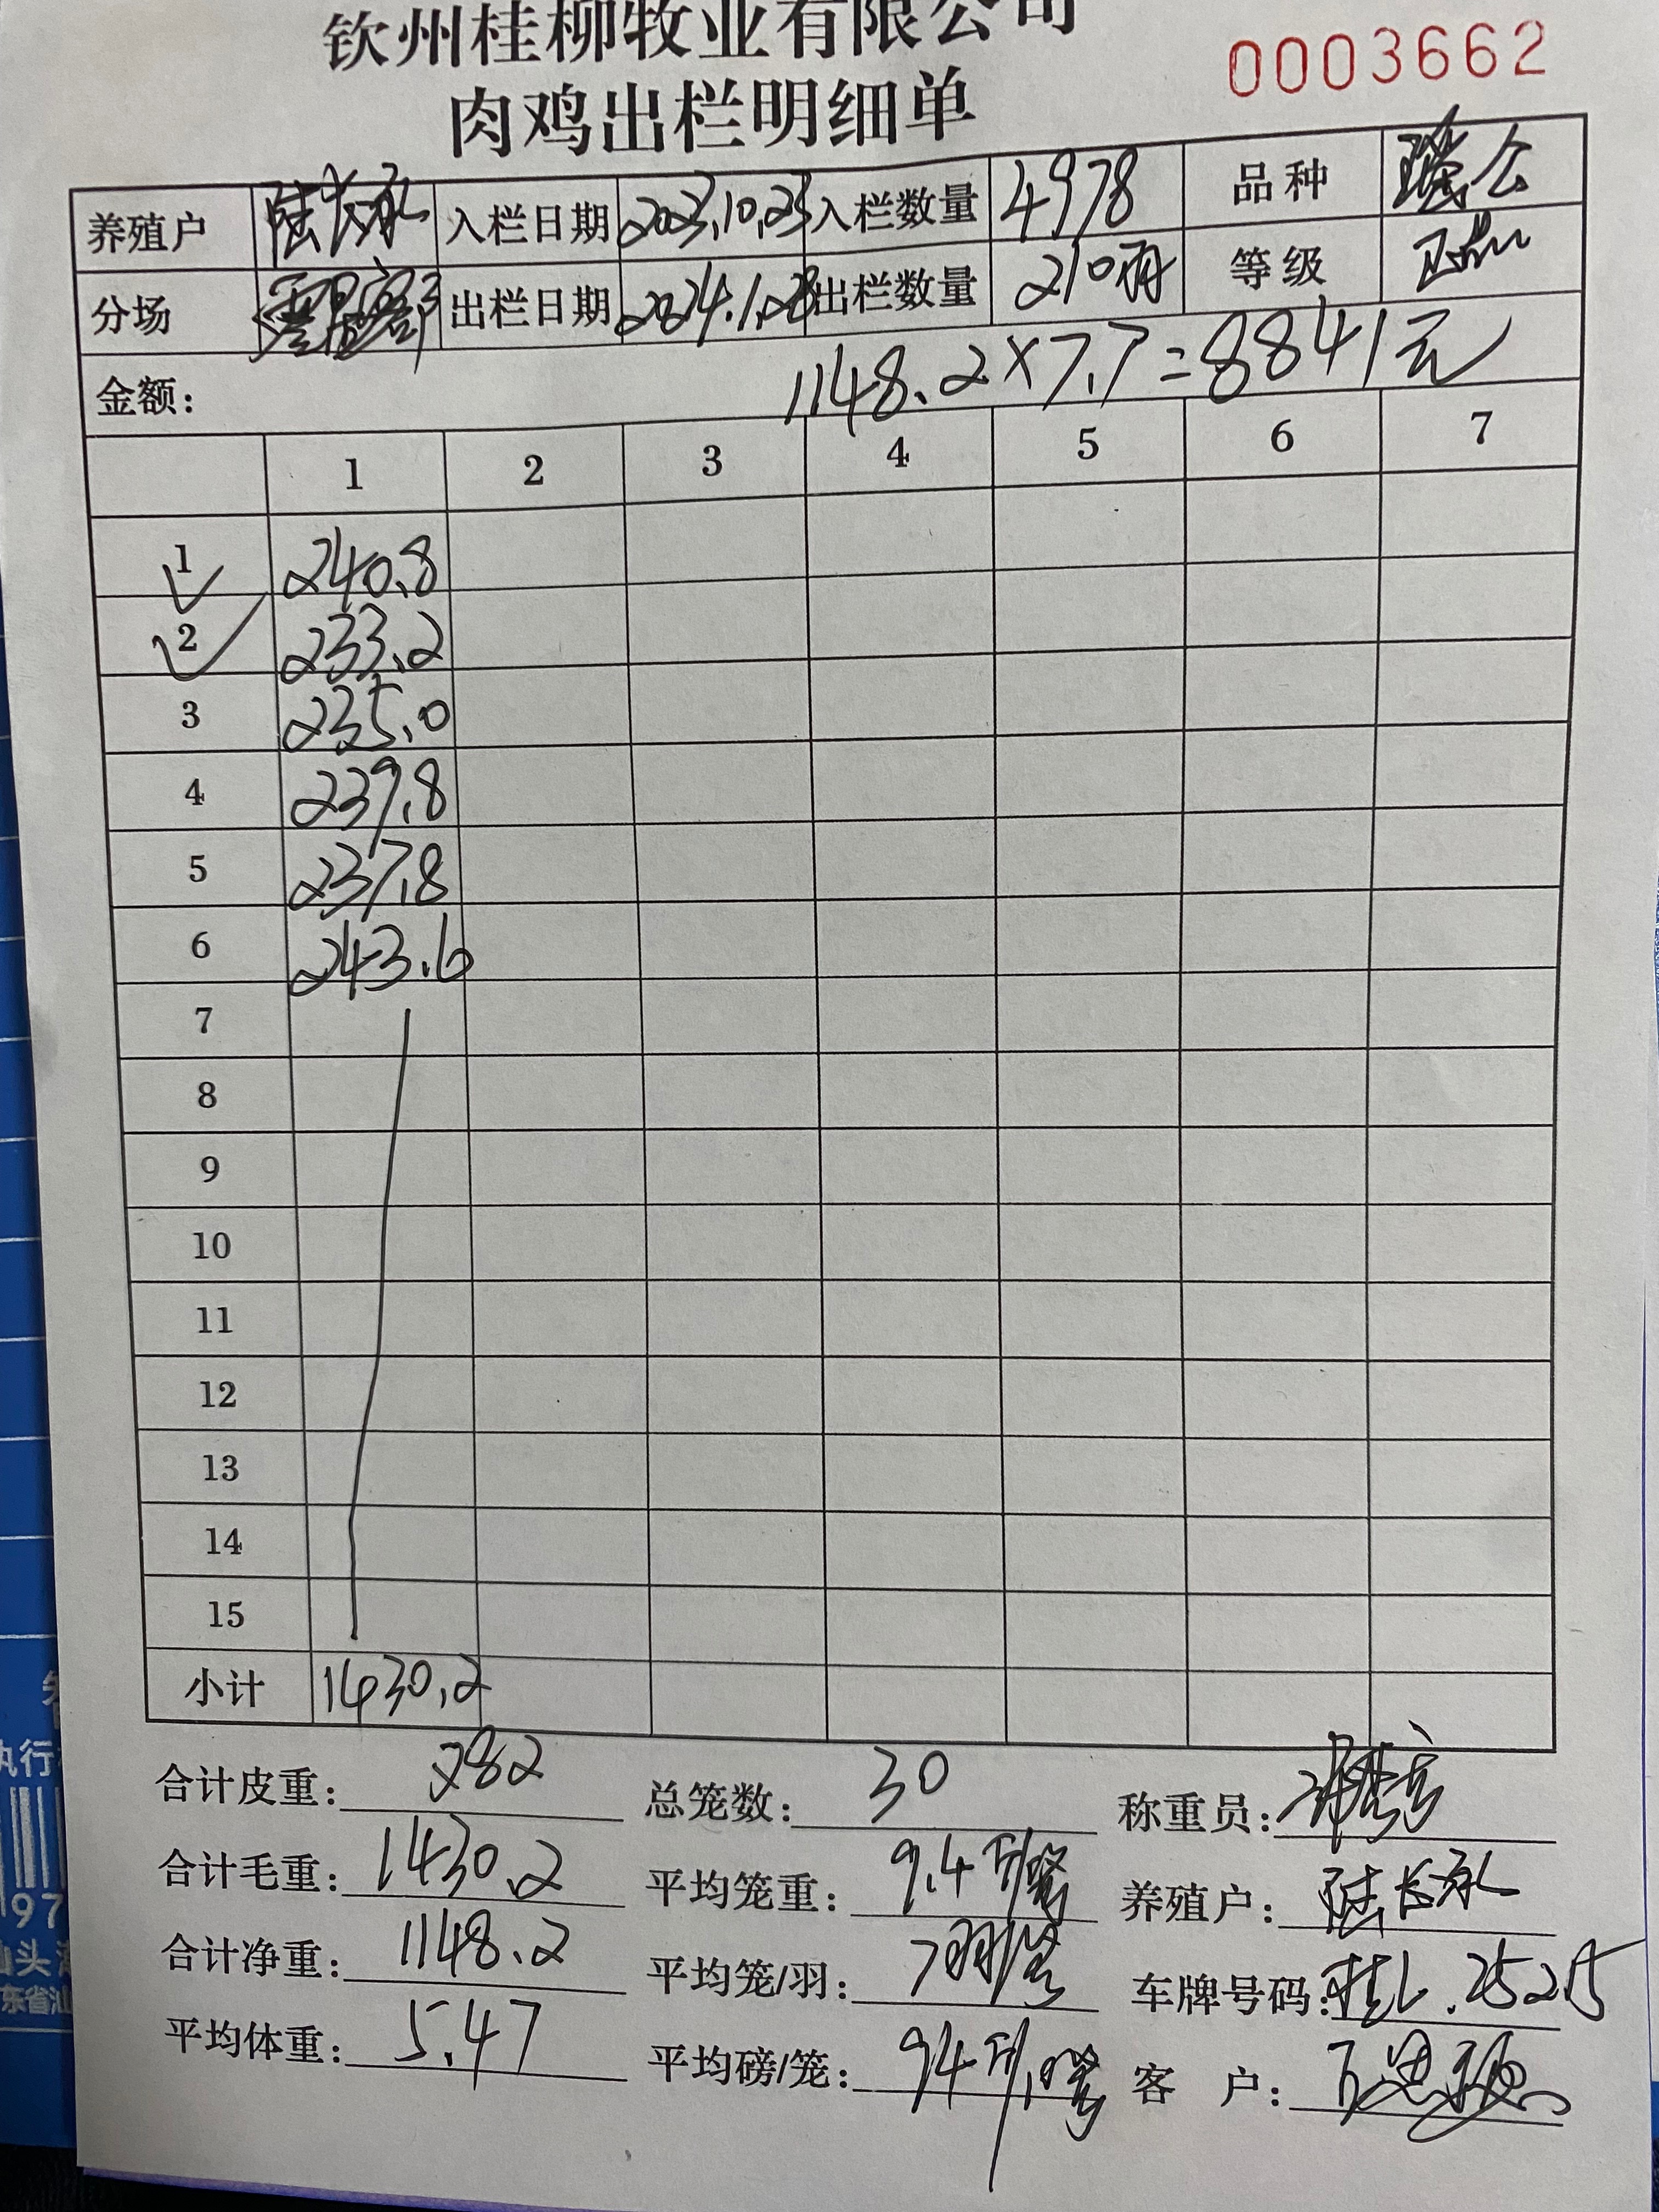 钦州桂柳牧业有限公司
0003662
肉鸡出栏明细单
养殖户 陆长永 入栏日期 2023.10.23 入栏数量 4978 品种 瑶公
分场 出栏日期 2024.1.28 出栏数量 210羽 等级 正品
金额: 1148.2×7.7=8841元
1 2 3 4 5 6 7
1 240.8
2 233.2
3 235.0
4 239.8
5 237.8
6 243.6
7
8
9
10
11
12
13
14
15
小计 1430.2
合计皮重: 282 总笼数: 30 称重员:
合计毛重: 1430.2 平均笼重: 9.4斤/笼 养殖户: 陆长永
合计净重: 1148.2 平均笼/羽: 7羽/笼 车牌号码:
平均体重: 5.47 平均磅/笼: 客 户:
执行
97
汕头
东省汕